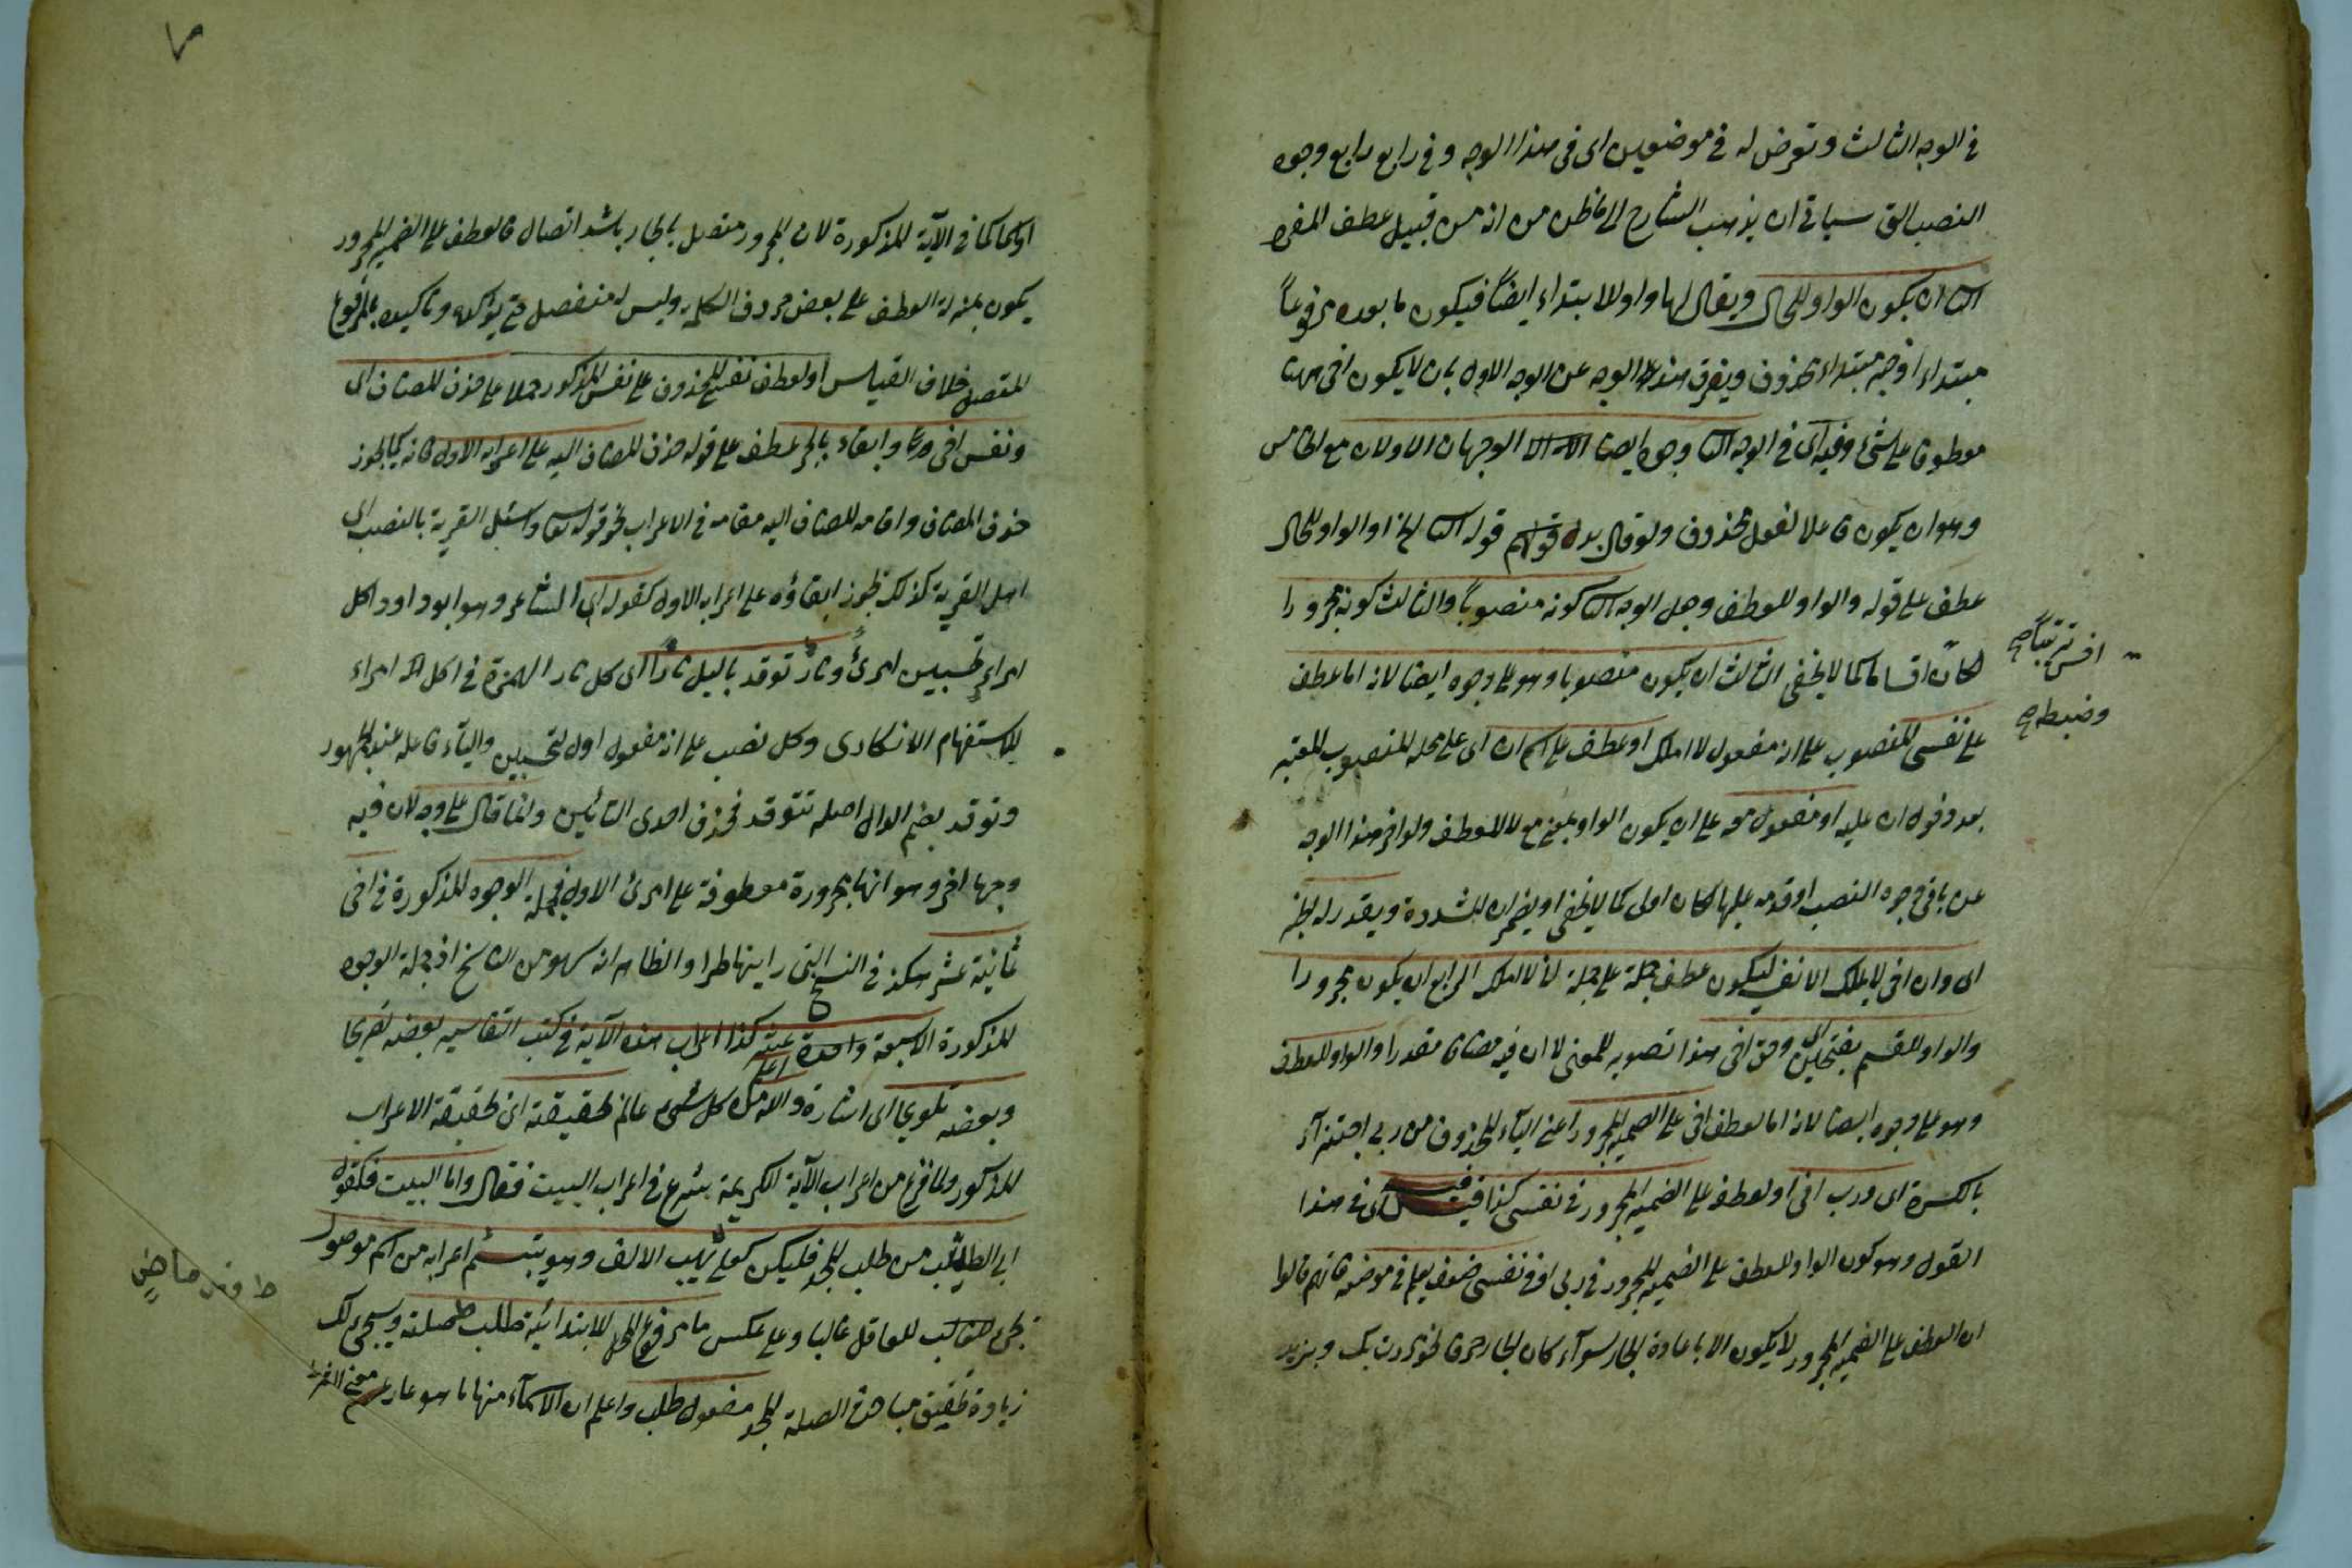 في الوجه الثالث وتعرض له في موضعين اى في هذا الوجه وفي رابع رابع وجوه
النصب التي سياتي ان يذهب الشارح الى ما ظن من انه من قبيل عطف المفرد
الثا ان يكون الواو للحال ويقال لها واو الابتداء ايضاً فيكون ما بعده مرفوعاً
مبتداء او خبر مبتداء محذوف ويفرق هذا الوجه عن الوجه الاول بان لا يكون اخى ههنا
معطوفا على شئ وفيه اى في الوجه الثا وجوه ايضا الوجهان الاولان مع الخامس
وهو ان يكون فاعلا لفعل محذوف ولو قال بدل قوله الثا الخ او الواو للحال
عطف على قوله والواو للعطف وجعل الوجه الثا كونه منصوباً والثالث كونه مجرورا
لكان اقساما كما لا يخفى الثالث ان يكون منصوبا وهو على وجوه ايضا لانه اما عطف
على نفسى المنصوب على انه مفعول لا املك او عطف على اسم ان اى على محله المنصوب المعتبر
بعد دخول ان عليه او مفعول معه على ان يكون الواو بمعنى مع لا للعطف ولو اخر هذا الوجه
عن باقى وجوه النصب او قدمه عليها لكان اولى كما لا يخفى او يضمر ان المشددة ويقدر له الخبر
اى وان اخى لا يملك الا نفسه فيكون عطف جملة على جملة انا لا املك الرابع ان يكون مجرورا
والواو للقسم بفتحتين اى وحق اخى هذا تصوير للمعنى لا ان فيه مضافا مقدرا والواو للعطف
وهو على وجوه ايضا لانه اما لعطف اخى على الضمير المجرور اعنى الياء المحذوف من ربى اجتزاء
بالكسرة اى ورب اخى او لعطف على الضمير المجرور في نفسى كذا قيل اى في هذا
القول وهو كون الواو للعطف على الضمير المجرور في ربى او في نفسى ضعف يعلم في موضعه فانهم قالوا
ان العطف على الضمير المجرور لا يكون الا باعادة الجار سواء كان الجار حرفا نحو مررت بك وبزيد
ترتيبا صح
وضبطه صح
او اسما كما في الآية المذكورة لان المجرور متصل بالجار باشد اتصال فالعطف على الضمير المجرور
يكون بمنزلة العطف على بعض حروف الكلمة وليس له منفصل حتى يؤكد به وتاكيده بالمرفوع
المتصل خلاف القياس او لعطف نفس المحذوف على نفس المذكور حملا على حذف المضاف اى
ونفس اخى وابقاء بالجر عطف على قوله حذف المضاف اليه على اعرابه الاول فانه كما يجوز
حذف المضاف واقامة المضاف اليه مقامه في الاعراب نحو قوله تعا واسئل القرية بالنصب اى
اهل القرية كذلك يجوز ابقاؤه على اعرابه الاول كقوله اى الشاعر وهو ابو داود اكل
امراء تحسبين امرئ ونار توقد بالليل نارا اى كل نار الهمزة في اكل امراء
للاستفهام الانكارى وكل نصب على انه مفعول اول لتحسبين والياء فاعله عند الجمهور
وتوقد بضم الدال اصله تتوقد فحذف احدى التائين وانما قال على وجه لان فيه
وجها اخر وهو انها مجرورة معطوفة على امرئ الاول فجملة الوجوه المذكورة في اخى
ثمانية عشر هكذا في النسخ التى رايناها طرا والظاهر انه سهو من الناسخ اذ جملة الوجوه
المذكورة الاسبعة واحدة عشر كذا اعراب هذه الآية في كتب التفاسير بعضه تصريحا
وبعضه تلويحا اى اشارة والله اعلم كل شئ عالم لحقيقته اى لحقيقة الاعراب
المذكور ولما فرغ من اعراب الآية الكريمة شرع في اعراب البيت فقال واما البيت فكقول
ابى الطيب من طلب المجد فليكن كعلى يهب الالف وهو يبتسم اعرابه من اسم موصول
للعاقل غالبا وعلى عكس ما مرفوع المحل للابتدائية طلب صلته وسيجئ لك
زيادة تحقيق مباحث الصلة المجد مفعول طلب واعلم ان الاسماء منها ما هو عار عن معنى الشرط